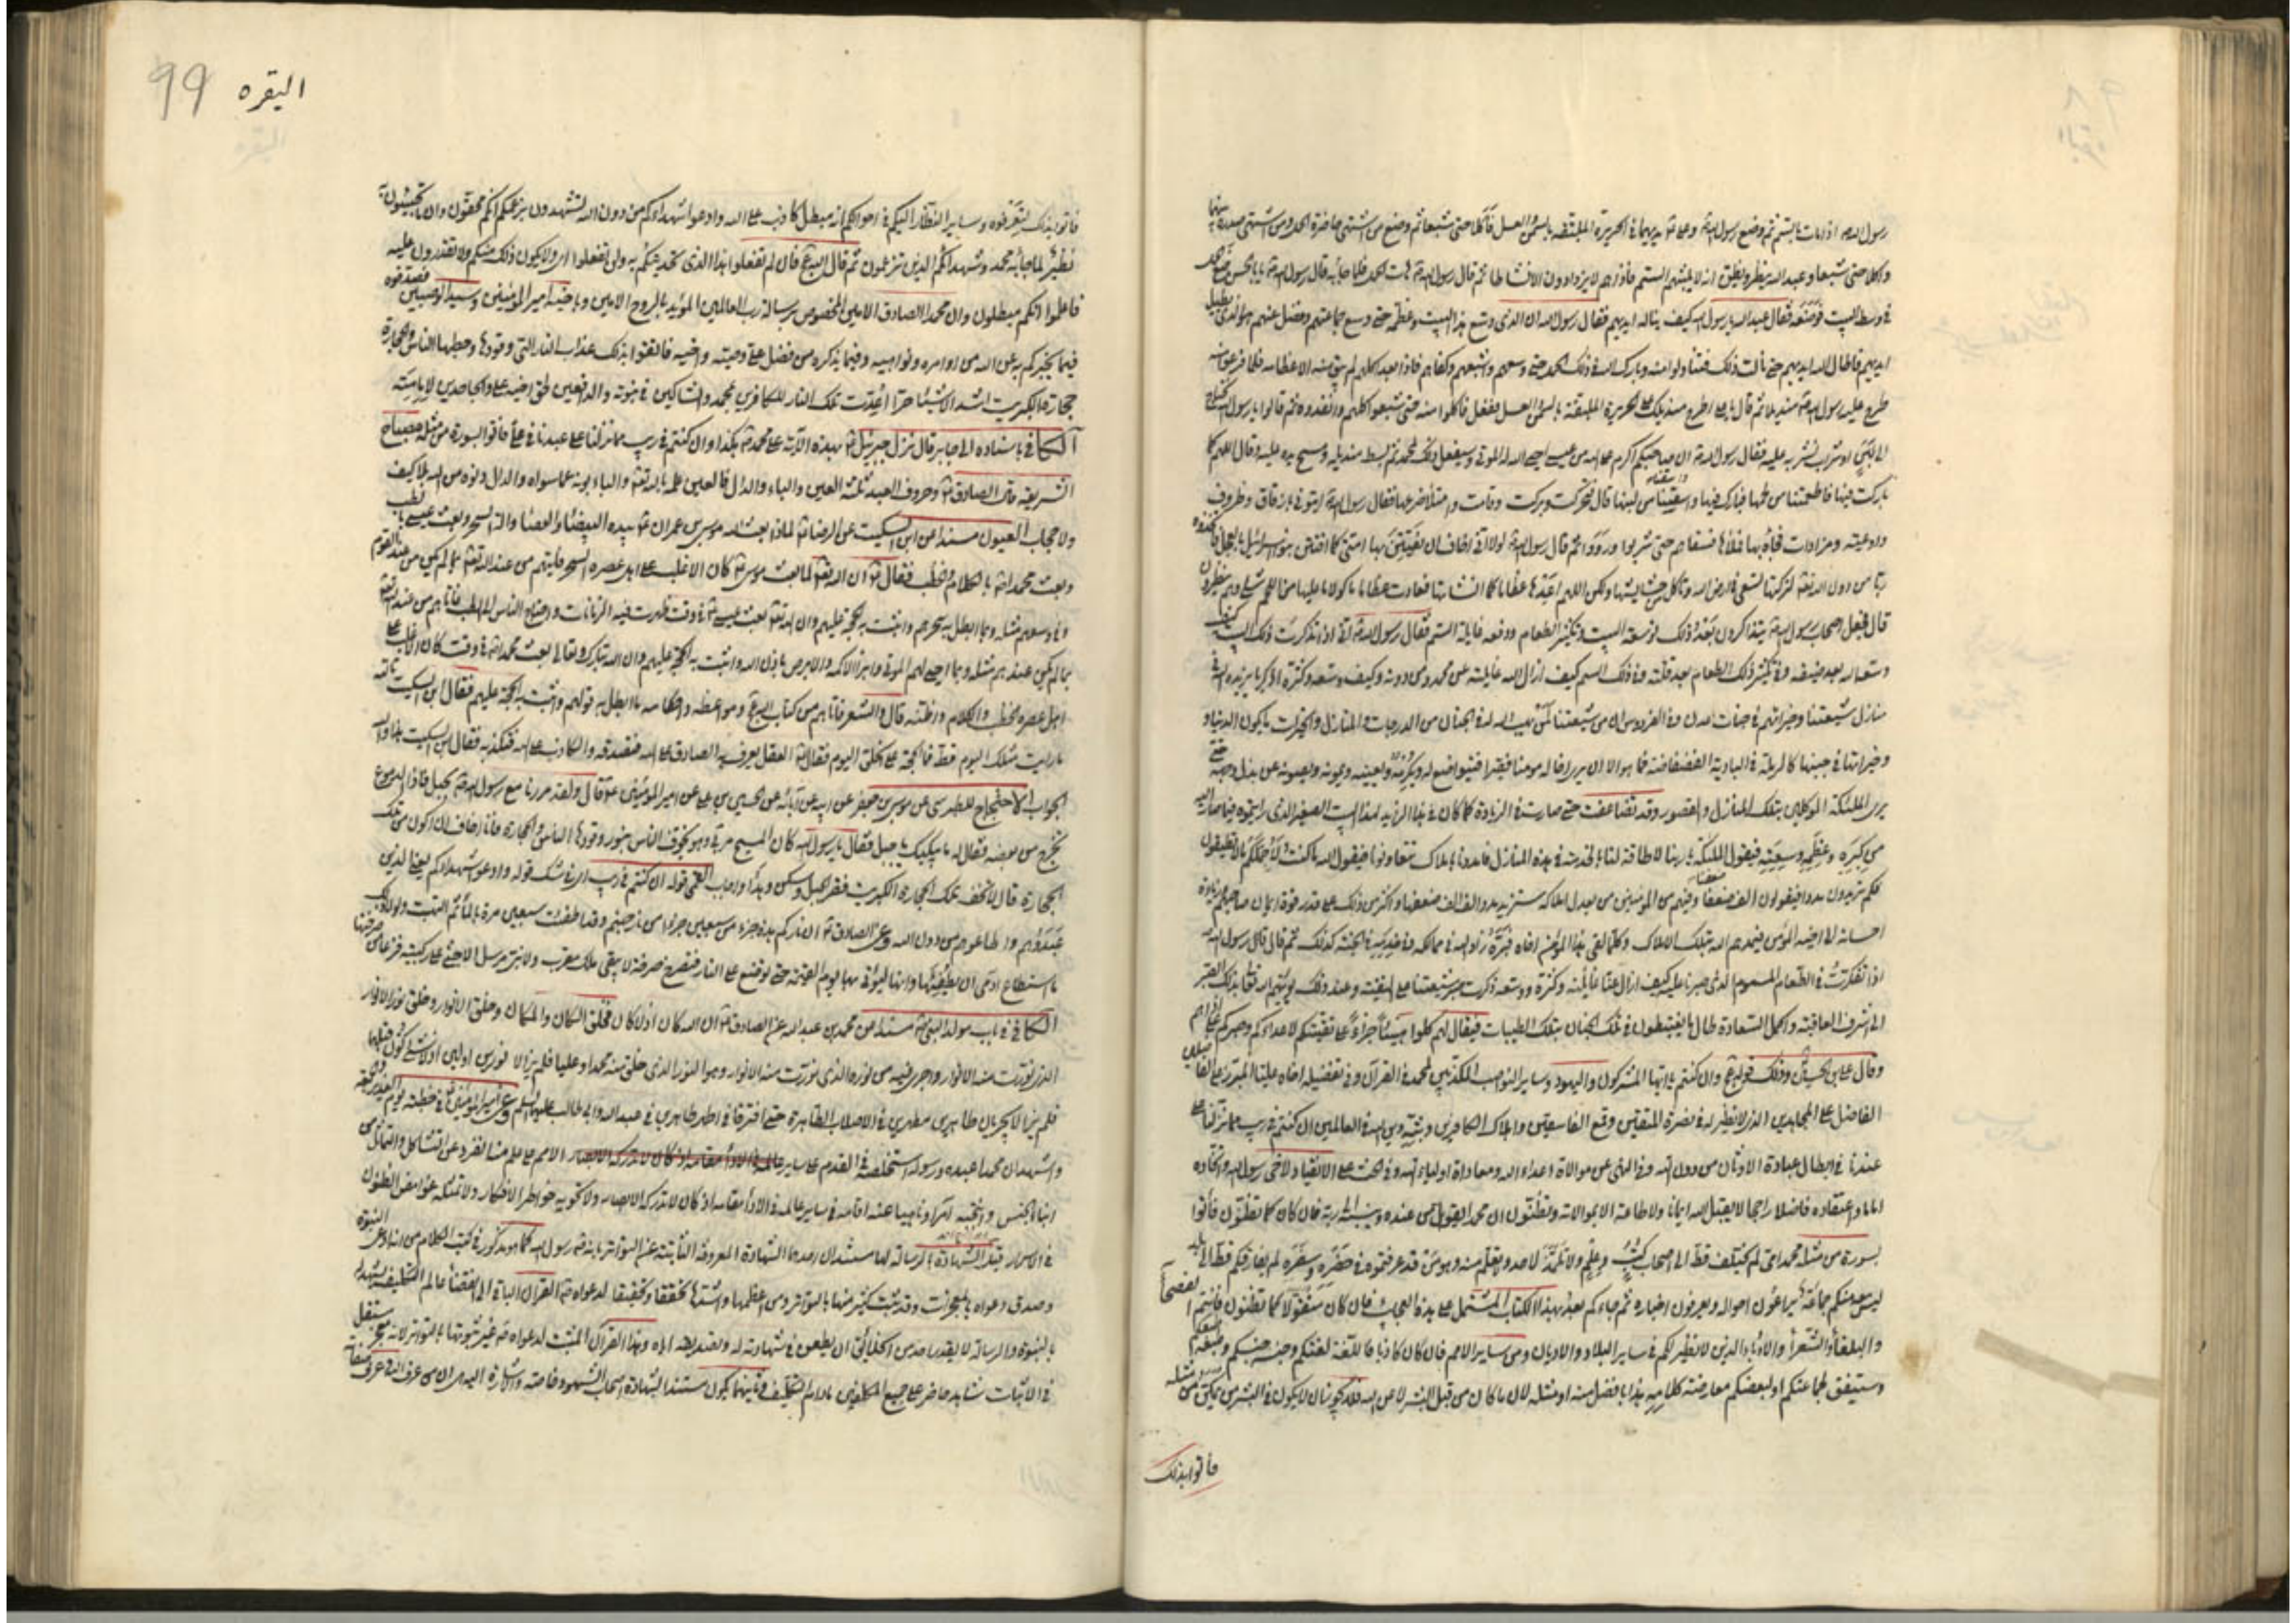 رسول الله اذ امات بالستم ثم وضع رسول الله وعلى يديهما في الحريرة الملبقة بالسمن والعسل فأكلا حتى شبعا ثم وضع من يشتهي خاصرة الحمل ومن يشتهي صدره منهما
واكلا حتى شبعا وعبد الله ينظر ويظن انه لا يلبثهم السم فاذا هم لا يزدادون الا نشاطا ثم قال رسول الله هات الحمل فلما جاء به قال رسول الله يا ابا الحسن ضع الحمل
في وسط البيت فوضعه فقال عبد الله يا رسول الله كيف يناله ايديهم فقال رسول الله ان الذي وسع هذا البيت وعظمه حتى وسع جماعتهم وفضل عنهم هو الذي يطيل
ايديهم فاطال الله ايديهم حتى نالت ذلك فتناولوا منه وبارك الله في ذلك الحمل حتى وسعهم واشبعهم وكفاهم فاذا بعد اكلهم لم يبق منه الا عظامه فلما فرغوا منه
طرح عليه رسول الله منديلا ثم قال يا علي اطرح منديلك على الحريرة الملبقة بالسمن والعسل ففعل فاكلوا منه حتى شبعوا كلهم وانفدوه ثم قالوا يا رسول الله نحتاج
الى لبن او شراب نشربه عليه فقال رسول الله ان صاحبكم اكرم على الله من عيسى احيى الله له الموتى وسيفعل ذلك لمحمد ثم بسط منديله ومسح يده عليه وقال اللهم كما
باركت فيها فاطعمتنا من لحمها فبارك فيها واسقنا من لبنها قال فتحركت وبركت وقامت وامتلأ ضرعها فقال رسول الله ايتوني بازقاق وظروف
واوعية ومزادات فجاؤا بها فملأها فسقاهم حتى شربوا ورووا ثم قال رسول الله لولا اني اخاف ان يفتتن بها امتي كما افتتن بنو اسرائيل بالعجل فاتخذوه
ربا من دون الله تعالى لتركتها تسعى في ارض الله وتأكل من حشايشها ولكن اللهم اعدها عظاما كما انشأتها فعادت عظاما ماكولا ما عليها من اللحم شيء وهم ينظرون
قال فجعل اصحاب رسول الله يتذاكرون بعد ذلك توسعة البيت وتكثير الطعام ودفعه غايلة السم فقال رسول الله اني اذا تذكرت ذلك البيت كيف
وسعه الله بعد ضيقه وفي تكثير ذلك الطعام بعد قلته وفي ذلك السم كيف ازال الله غايلته عن محمد ومن دونه وكيف وسعه وكثره اذكر ما يزيده الله في
منازل شيعتنا وخيراتهم في جنات عدن وفي الفردوس ان من شيعتنا لمن يهب الله له في الجنان من الدرجات والمنازل والخيرات ما يكون الدنيا و
خيراتها في جنبها كالرملة في البادية الفضفاضة فما هو الا ان يرى اخا له مومنا فقيرا فيتواضع له ويكرمه ويعينه ويمونه ويصونه عن بذل وجهه حتى
يرى الملئكة الموكلين بتلك المنازل والقصور وقد تضاعفت حتى صارت في الزيادة كما كان في هذا الزايد لهذا البيت الصغير الذي رايتموه فيما صار اليه
من كبره وعظمه وسعته فيقول الملئكة يا ربنا لا طاقة لنا بالخدمة في هذه المنازل فامددنا باملاك يتعاونونا فيقول الله ما كنت لاحملكم ما لا تطيقون
فكم تريدون مددا فيقولون الف ضعفنا وفيهم من المؤمنين من يعد املاكه يستزيد مددا الف الف ضعفها واكثر من ذلك على قدر قوة ايمان صاحبهم وزيادة
احسانه الى اخيه المؤمن فيمدهم الله بتلك الاملاك وكلما لقي هذا المؤمن اخاه فبره زاده الله في ممالكه وفي خدمه في الجنة كذلك ثم قال قال رسول الله
اذا تفكرت في الطعام المسموم الذي صبرنا عليه كيف ازال الله عنا غايلته وكثره ووسعه ذكرت صبر شيعتنا على التقية وعند ذلك يؤديهم الله تعالى بذلك الصبر
الى اشرف العاقبة واكمل السعادة طال ما يغتبطون في تلك الجنان بتلك الطيبات فيقال لهم كلوا هنيئا جزاء على تقيتكم لاعدائكم وصبركم على اذاهم
وقال علي بن الحسين وذلك قوله عز وجل وان كنتم يا ايها المشركون واليهود وساير النواصب المكذبين لمحمد في القرآن وفي تفضيله اخاه عليا المبرز على الفاضلين
الفاضل على المجاهدين الذي لا نظير له في نصرة المتقين وقمع الفاسقين واهلاك الكافرين وبث دين الله في العالمين ان كنتم في ريب مما نزلنا على
عبدنا في ابطال عبادة الاوثان من دون الله وفي النهي عن موالاة اعداء الله ومعاداة اولياء الله وفي الحث على الانقياد لاخي رسول الله واتخاذه
اماما واعتقاده فاضلا راجحا لا يقبل الله ايمانا ولا طاعة الا بموالاته وتظنون ان محمدا تقوله من عنده وينسبه الى ربه فان كان كما تظنون فأتوا
بسورة من مثله مثل محمد امي لم يختلف قط الى اصحاب كتب وعلم ولا تلمذ لاحد ولا تعلم منه وهو من قد عرفتموه في حضره وسفره لم يفارقكم قط الى بلد
ليس معه منكم جماعة يراعون احواله ويعرفون اخباره ثم جاءكم بعد بهذا الكتاب المشتمل على هذه العجايب فان كان متقولا كما تظنون فانتم الفصحاء
والبلغاء والشعراء والادباء الذين لا نظير لكم في ساير البلاد والاديان ومن ساير الامم فان كان كاذبا فاللغة لغتكم وجنسه جنسكم وطبعه طبعكم
وسيتفق لجماعتكم او لبعضكم معارضة كلامه هذا بافضل منه او مثله لان ما كان من قبل البشر لا من الله فلا يجوز ان لا يكون في البشر من يتمكن من مثله
فأتوا بذلك
البقره 99
فأتوا بذلك لتعرفوه وساير النظار اليكم في احوالكم انه مبطل كاذب على الله وادعوا شهداءكم من دون الله يشهدون بزعمكم انكم محقون وان ما تجيئون به
نظير لما جاء به محمد وشهداءكم الذين تزعمون ثم قال الله عز وجل فان لم تفعلوا هذا الذي تحديتكم به ولن تفعلوا اي ولا يكون ذلك منكم ولا تقدرون عليه
فاعلموا انكم مبطلون وان محمدا الصادق الامين المخصوص برسالة رب العالمين المؤيد بالروح الامين وباخيه امير المؤمنين وسيد الوصيين فصدقوه
فيما يخبركم به عن الله من اوامره ونواهيه وفيما يذكره من فضل علي وصيه واخيه فاتقوا بذلك عذاب النار التي وقودها وحطبها الناس والحجارة
حجارة الكبريت اشد الاشياء حرا اعدت تلك النار للكافرين بمحمد والشاكين في نبوته والدافعين لحق اخيه علي والجاحدين لامامته
الكافي باسناده الى جابر قال نزل جبرئيل بهذه الآية على محمد هكذا وان كنتم في ريب مما نزلنا على عبدنا في علي فأتوا بسورة من مثله مصباح
الشريعة قال الصادق وحروف العبد ثلثة العين والباء والدال فالعين علمه بالله تعالى والباء بونه عما سواه والدال دنوه من الله بلا كيف
ولا حجاب العيون مسندا عن ابن السكيت عن الرضا لماذا بعث الله موسى بن عمران بيده البيضاء والعصا وآلة السحر وبعث عيسى بالطب
وبعث محمدا بالكلام والخطب فقال ان الله تعالى لما بعث موسى كان الاغلب على اهل عصره السحر فأتيهم من عند الله تعالى بما لم يكن من عند القوم
وفي وسعهم مثله وبما ابطل به سحرهم واثبت به الحجة عليهم وان الله تعالى بعث عيسى في وقت ظهرت فيه الزمانات واحتاج الناس الى الطب فأتاهم من عند الله تعالى
بما لم يكن عندهم مثله وبما احيى لهم الموتى وابرأ الاكمه والابرص باذن الله واثبت به الحجة عليهم وان الله تبارك وتعالى بعث محمدا في وقت كان الاغلب على
اهل عصره الخطب والكلام واظنه قال والشعر فأتاهم من كتاب الله عز وجل ومواعظه واحكامه ما ابطل به قولهم واثبت به الحجة عليهم فقال ابن السكيت تالله
ما رايت مثلك اليوم قط فما الحجة على الخلق اليوم فقال العقل يعرف به الصادق على الله فيصدقه والكاذب على الله فيكذبه فقال ابن السكيت هذا والله
الجواب الاحتجاج للطبرسي عن موسى بن جعفر عن ابيه عن آبائه عن الحسين بن علي عن امير المؤمنين قال ولقد مررنا مع رسول الله بجبل فاذا الدموع
تخرج من بعضه فقال له ما يبكيك يا جبل فقال يا رسول الله كان المسيح مر بي وهو يخوف الناس بنار وقودها الناس والحجارة فأنا اخاف ان اكون من تلك
الحجارة قال لا تخف تلك الحجارة الكبريت فقر الجبل وسكن وهدأ واجاب القمي قوله ان كنتم في ريب اي في شك قوله وادعوا شهداءكم يعني الذين
عبدوهم واطاعوهم من دون الله وعن الصادق ان ناركم هذه جزء من سبعين جزءا من نار جهنم وقد اطفئت سبعين مرة بالماء ثم التهبت ولولا ذلك
ما استطاع آدمي ان يطفئها وانها ليؤتى بها يوم القيمة حتى توضع على النار فتصرخ صرخة لا يبقى ملك مقرب ولا نبي مرسل الا جثى على ركبتيه فزعا من صرختها
الكافي في باب مولد النبي مسندا عن محمد بن عبد الله عن الصادق ان الله كان اذ لا كان فخلق الكان والمكان وخلق الانوار وخلق نور الانوار
الذي نورت منه الانوار واجرى فيه من نوره الذي نورت منه الانوار وهو النور الذي خلق منه محمدا وعليا فلم يزالا نورين اولين اذ لا شيء كون قبلهما
فلم يزالا يجريان طاهرين مطهرين في الاصلاب الطاهرة حتى افترقا في اطهر طاهرين في عبد الله وابي طالب عليهما السلم وعن امير المؤمنين في خطبته يوم الغدير والجمعة
واشهد ان محمدا عبده ورسوله استخلصه في القدم على ساير الامم على علم منه انفرد عن التشاكل والتماثل من
ابناء الجنس وانتجبه آمرا وناهيا عنه اقامه في ساير عالمه في الاداء مقامه اذ كان لا تدركه الابصار ولا تحويه خواطر الافكار ولا تمثله غوامض الظنون
في الاسرار قبل الشهادة بالرسالة لها مستندان احدهما الشهادة المعروفة الثابتة عند التواتر بانه رسول الله كما هو مذكور في كتب الكلام من انه ادعى النبوة
وصدق دعواه بالمعجزات وقد ثبت كثير منها بالتواتر ومن اعظمها واشدها تحققا وتحقيقا لدعواه القرآن الباقي الى انقضاء عالم التكليف يشهد له
بالنبوة والرسالة لا يقدر احد من الخلائق ان يطعن في شهادته له وتصديقه اياه وهذا القرآن المثبت لدعواه غير ثبوتها بالتواتر لانه معجز مستقل
في الاثبات شاهد حاضر على جميع المكلفين مادام التكليف وثانيهما يكون مستندا لشهادة اصحاب الشهود خاصة والاشارة اليه ان من عرف